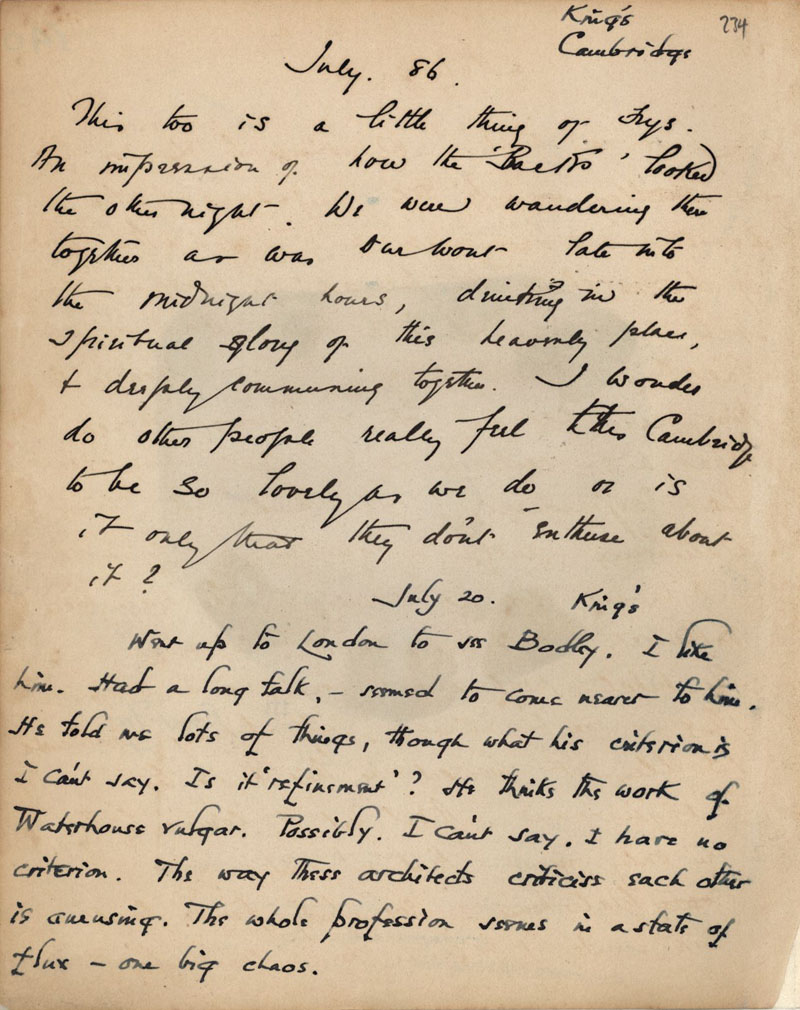 King's
Cambridge
234
July. 86.
This too is a little thing of Frys.
An impression of how the 'Backs' looked
the other night. We were wandering there
together as was our wont late into
the midnight hours, drinking in the
spiritual glory of this heavenly place,
& deeply communing together. I wonder
do other people really feel this Cambridge
to be so lovely as we do or is
it only that they don't enthuse about
it?
July 20. King's
Went up to London to see Bodley. I like
him. Had a long talk, – seemed to come nearer to him.
He told me lots of things, though what his criterion is
I can't say. Is it 'refinement'? He thinks the work of
Waterhouse vulgar. Possibly. I can't say. I have no
criterion. The way these architects criticise each other
is amusing. The whole profession seems in a state of
flux – one big chaos.